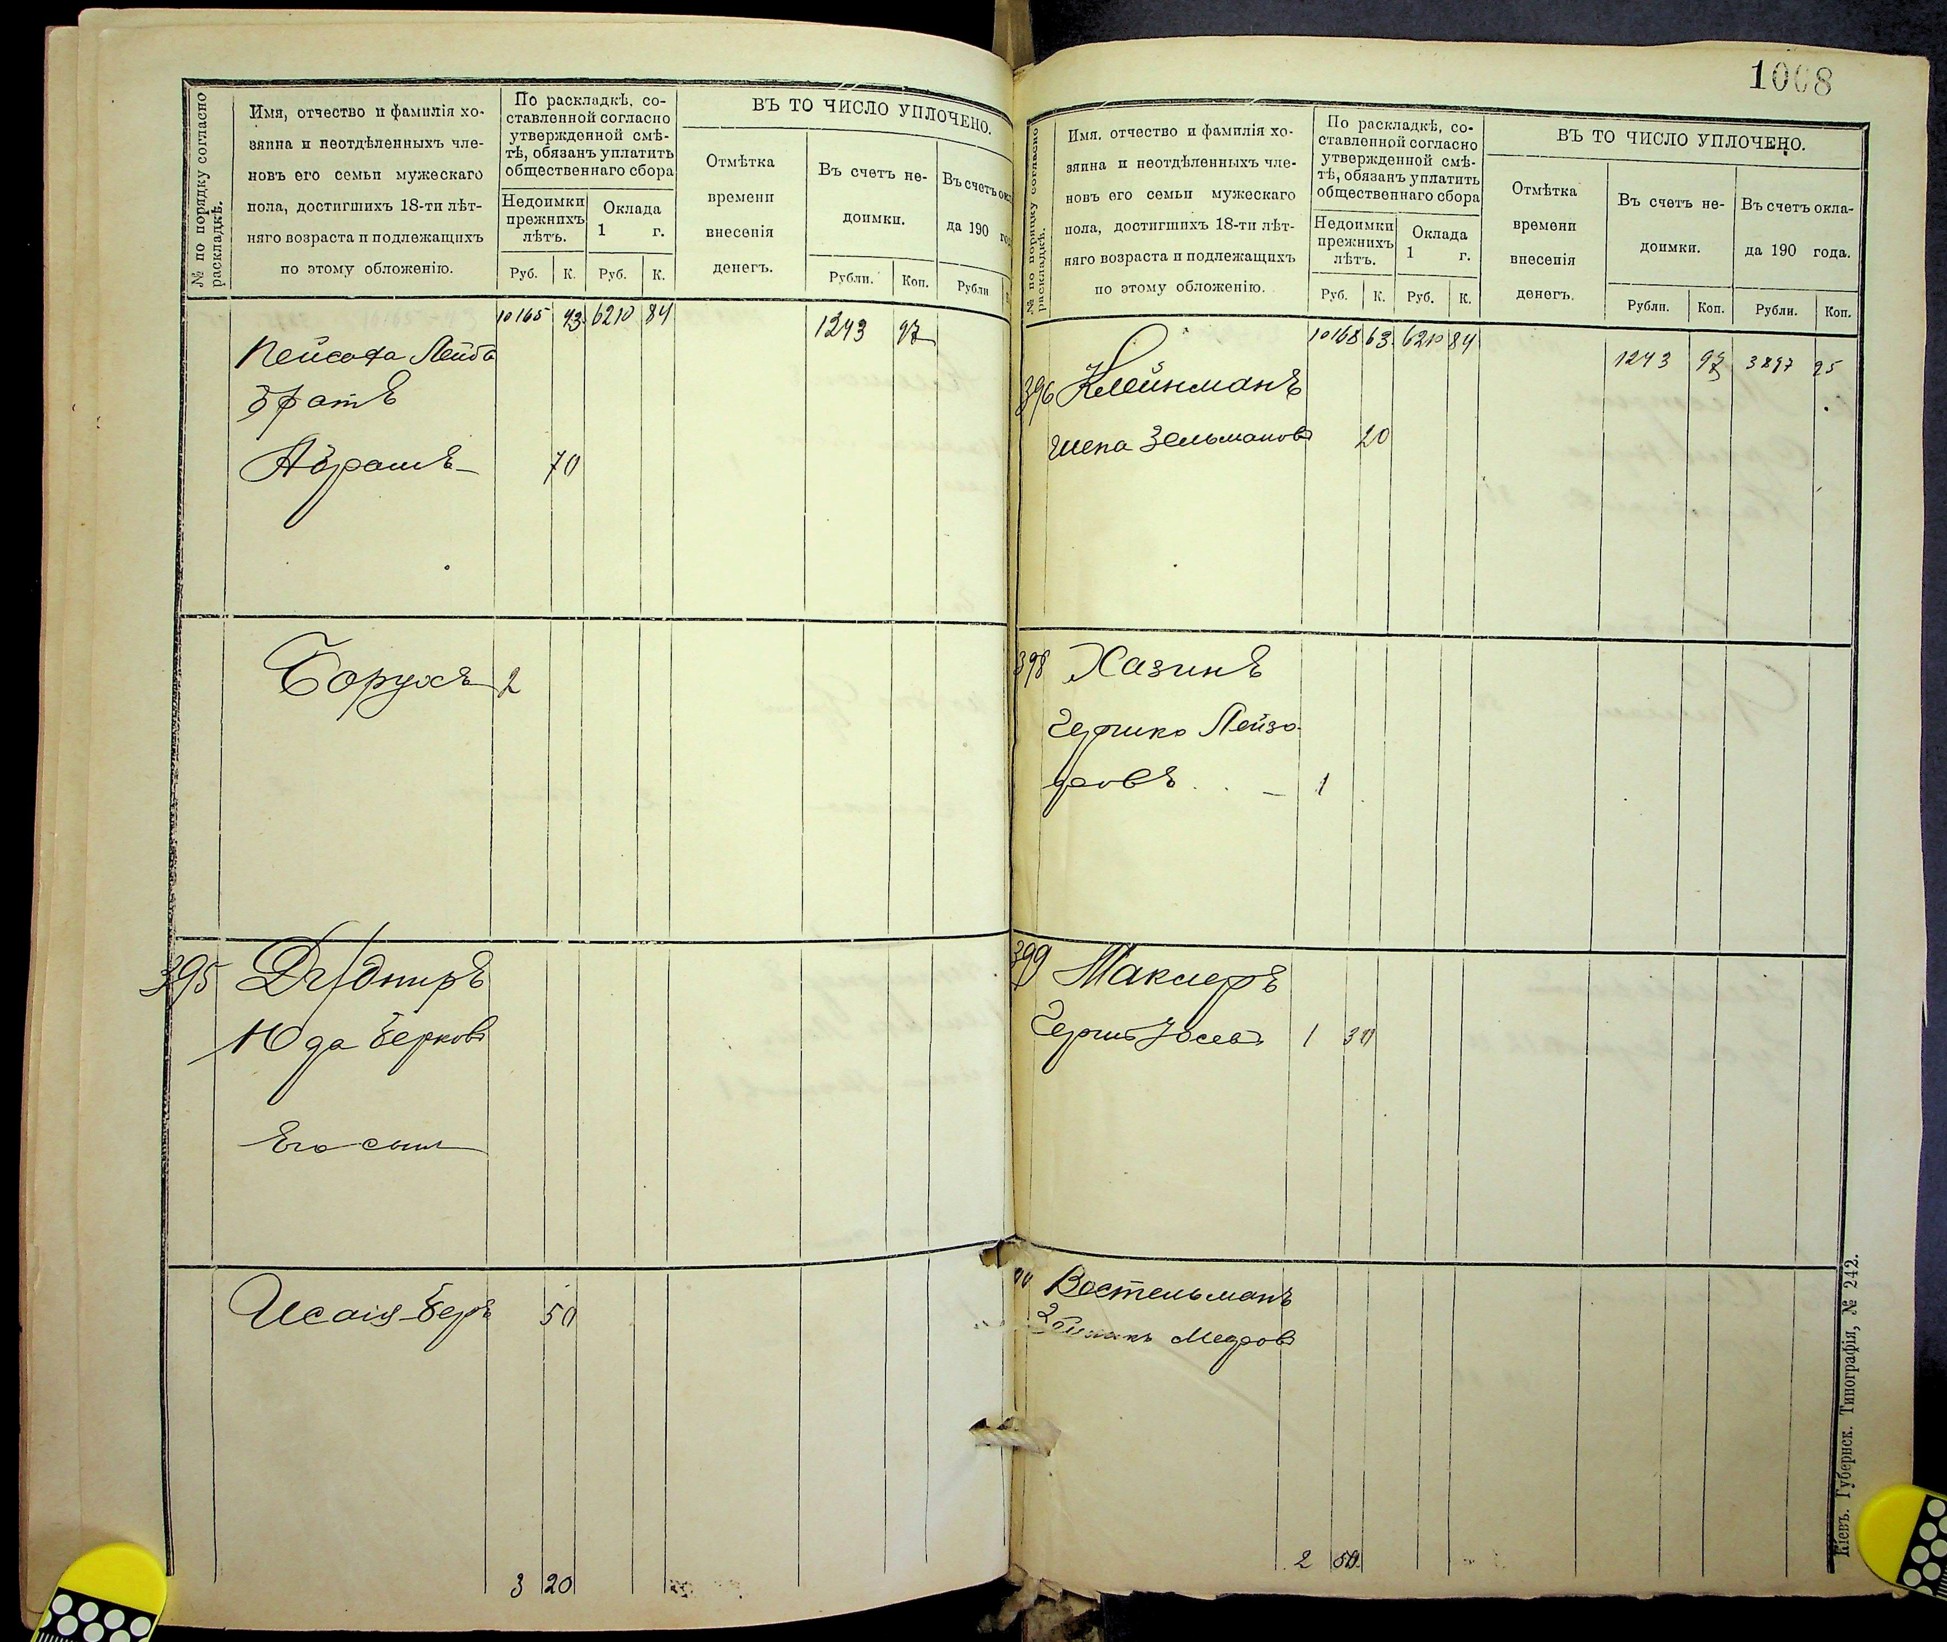 1008
№ по порядку согласно раскладкѣ.
Имя, отчество и фамилія хо-
зяина и неотдѣленныхъ чле-
новъ его семьи мужескаго
пола, достигшихъ 18-ти лѣт-
няго возраста и подлежащихъ
по этому обложенію.
По раскладкѣ, со-
ставленной согласно
утвержденной смѣ-
тѣ, обязанъ уплатить
общественнаго сбора
Недоимки
прежнихъ
лѣтъ.
Оклада
1 г.
Руб. К. Руб. К.
ВЪ ТО ЧИСЛО УПЛОЧЕНО.
Отмѣтка
времени
внесенія
денегъ.
Въ счетъ не-
доимки.
Рубли. Коп.
Въ счетъ
да 190
Рубли
10165 43 6210 84 1243 97
Пейсаха Лейба
Братъ
Абрамъ 70
Борухъ 2
395
Юда Берковъ
Его сын
Исаія-Беръ 50
3 20
№ по порядку согласно раскладкѣ.
Имя, отчество и фамилія хо-
зяина и неотдѣленныхъ чле-
новъ его семьи мужескаго
пола, достигшихъ 18-ти лѣт-
няго возраста и подлежащихъ
по этому обложенію.
По раскладкѣ, со-
ставленной согласно
утвержденной смѣ-
тѣ, обязанъ уплатить
общественнаго сбора
Недоимки
прежнихъ
лѣтъ.
Оклада
1 г.
Руб. К. Руб. К.
ВЪ ТО ЧИСЛО УПЛОЧЕНО.
Отмѣтка
времени
внесенія
денегъ.
Въ счетъ не-
доимки.
Рубли. Коп.
Въ счетъ окла-
да 190 года.
Рубли. Коп.
10168 63 6210 84 1243 97 3897 25
396 Клейнманъ
Шепа Зельмановъ 20
398 Хазинъ
Гершко Лейзо-
ровъ 1
399 Маклеръ
Гершъ Іосевъ 1 30
Востельманъ
2 50
Кіевъ. Губернск. Типографія, № 242.